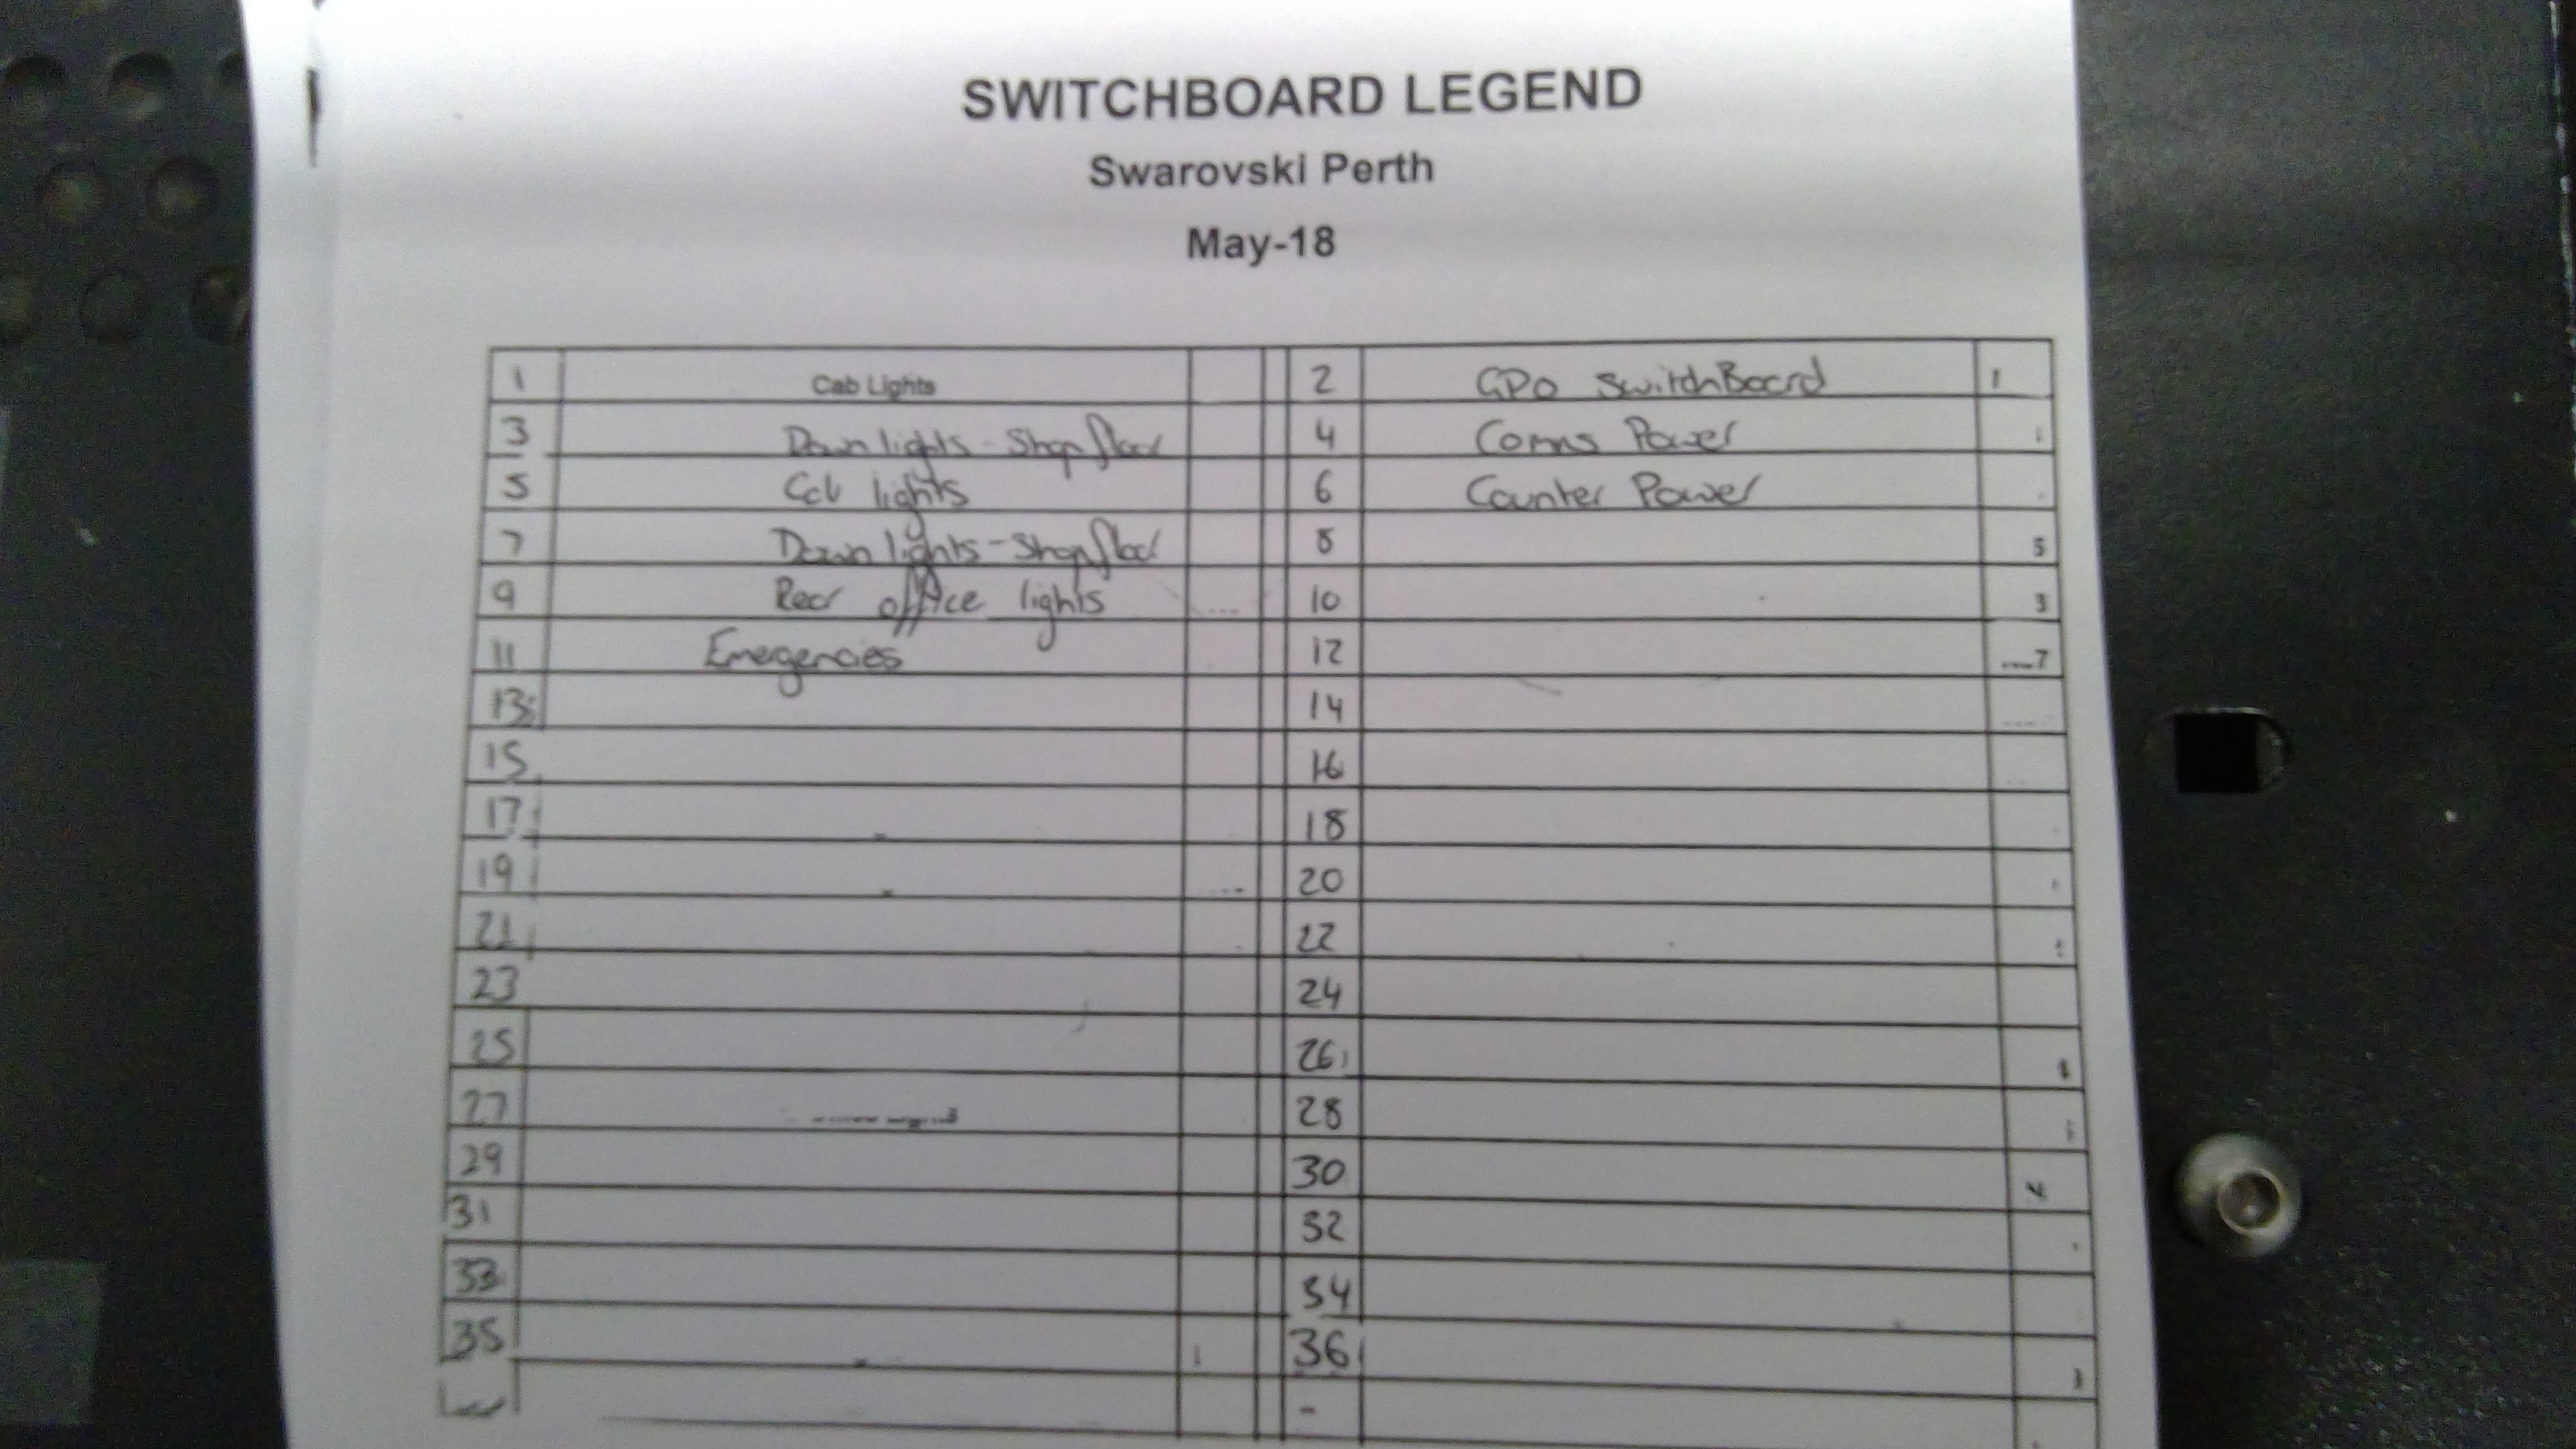 SWITCHBOARD LEGEND
Swarovski Perth
May-18
1 Cab Lights 2 GPO SwitchBoard 1
3 Down lights - Shop floor 4 Coms Power
5 Cab lights 6 Counter Power
7 Down lights - Shop floor 8 5
9 Rear office lights 10 3
11 Emergencies 12 7
13 14
15 16
17 18
19 20
21 22
23 24
25 26
27 28
29 30
31 32
33 34
35 36